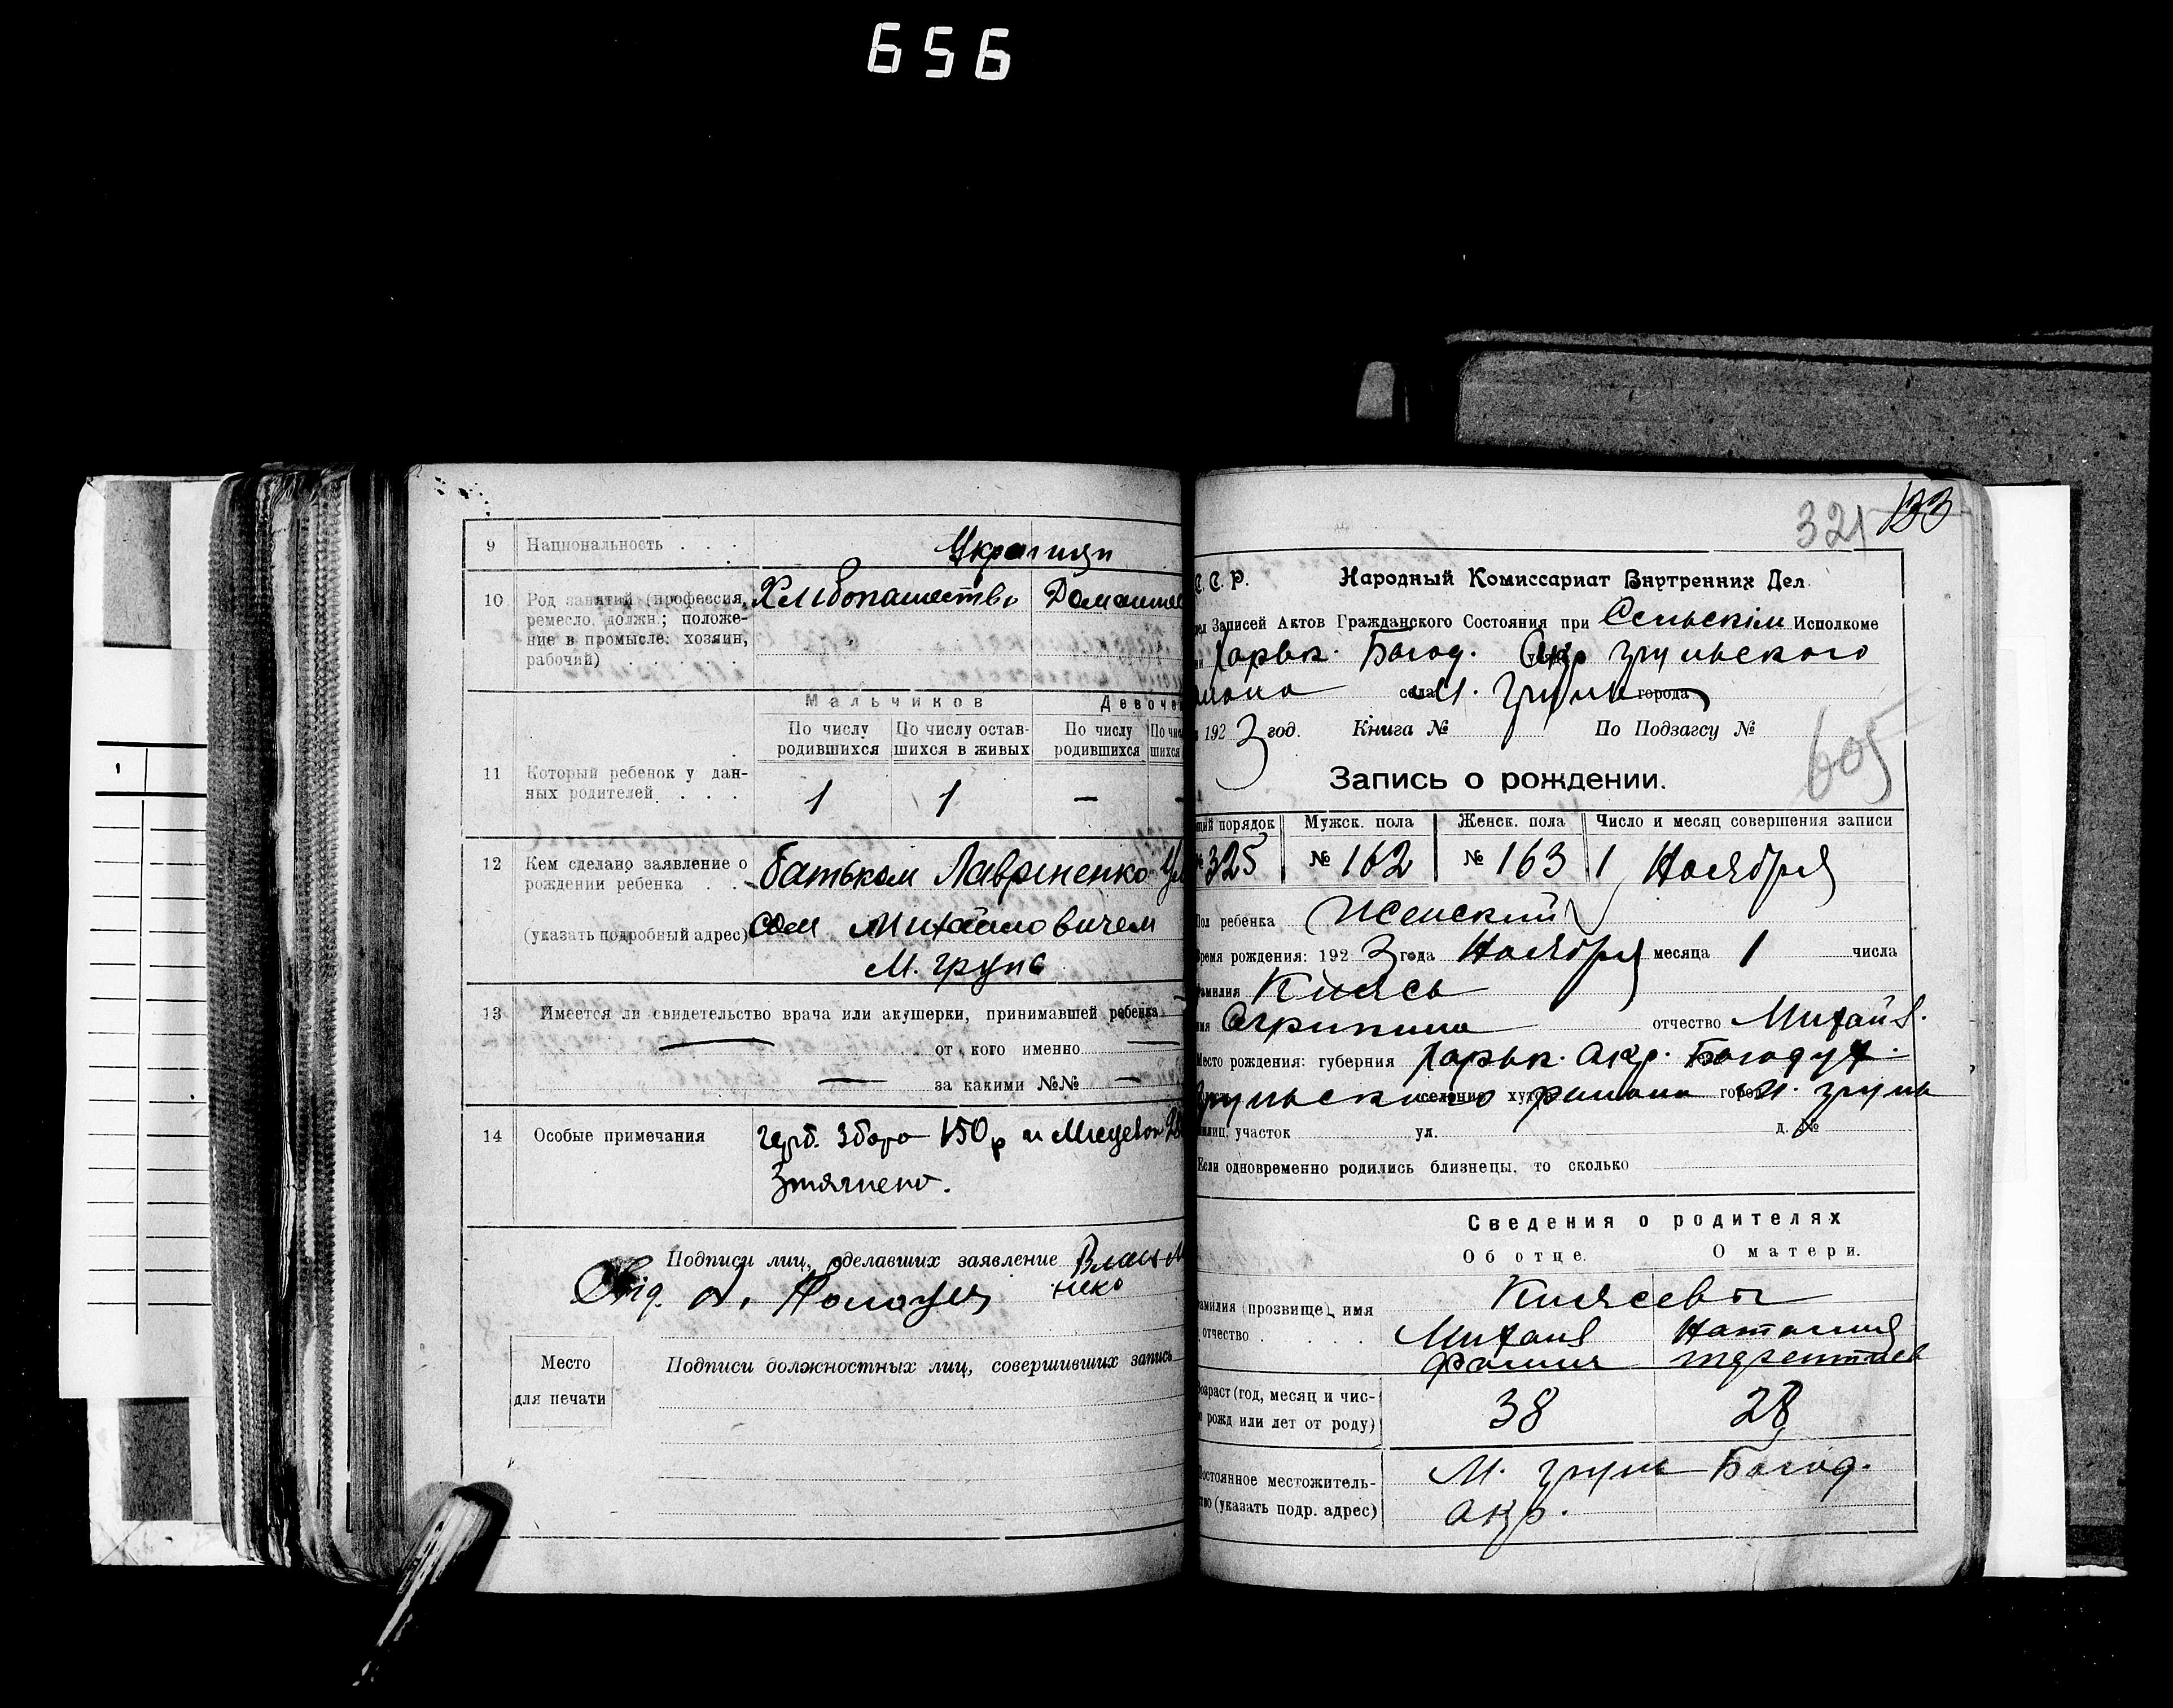 656
9 Национальность . . . Украинци
10 Род занятий (профессия,
ремесло, должн.; положе-
ние в промысле: хозяин,
рабочий) . . . . . .
Хлібопашество
Мальчиков
По числу
родившихся
По числу остав-
шихся в живых
По числу
родившихся
11 Который ребенок у дан-
ных родителей . . .
1 1 — —
12 Кем сделано заявление о
рождении ребенка . . .
(указать подробный адрес)
батьком Лавриненко
сом Михайловичем
М. Грунь
13 Имеется ли свидетельство врача или акушерки, принимавшей ребенка —
— от кого именно —
— за какими №№ —
14 Особые примечания
герб. збору 150 р
Зтягнено.
Подписи лиц, сделавших заявление Влас М
нко
Место
для печати
Подписи должностных лиц, совершивших запись
321 133
С. Р. Народный Комиссариат Внутренних Дел.
Записей Актов Гражданского Состояния при Сельскім Исполкоме
Харьк. Богод. Окр Грунського
села М. Грунь города
192 3 год. Книга № По Подзагсу №
605
Запись о рождении.
порядок Мужск. пола Женск. пола Число и месяц совершения записи
325 № 162 № 163 1 Ноября
Пол ребенка Женский
Время рождения: 192 3 года Ноября месяца 1 числа
Фамилия Князь
отчество Михайл.
Место рождения: губерния Харьк. Окр. Богодух.
Грунського района М. Грунь
участок ул. д. №
Если одновременно родились близнецы, то сколько
Сведения о родителях
Об отце. О матери.
Фамилия (прозвище), имя
отчество . . . . .
Князевы
Михаил Наталия
Фомич
Возраст (год, месяц и чис-
рожд или лет от роду)
38 28
Постоянное местожитель-
ство (указать подр. адрес)
М. Грунь Богод.
Окр.